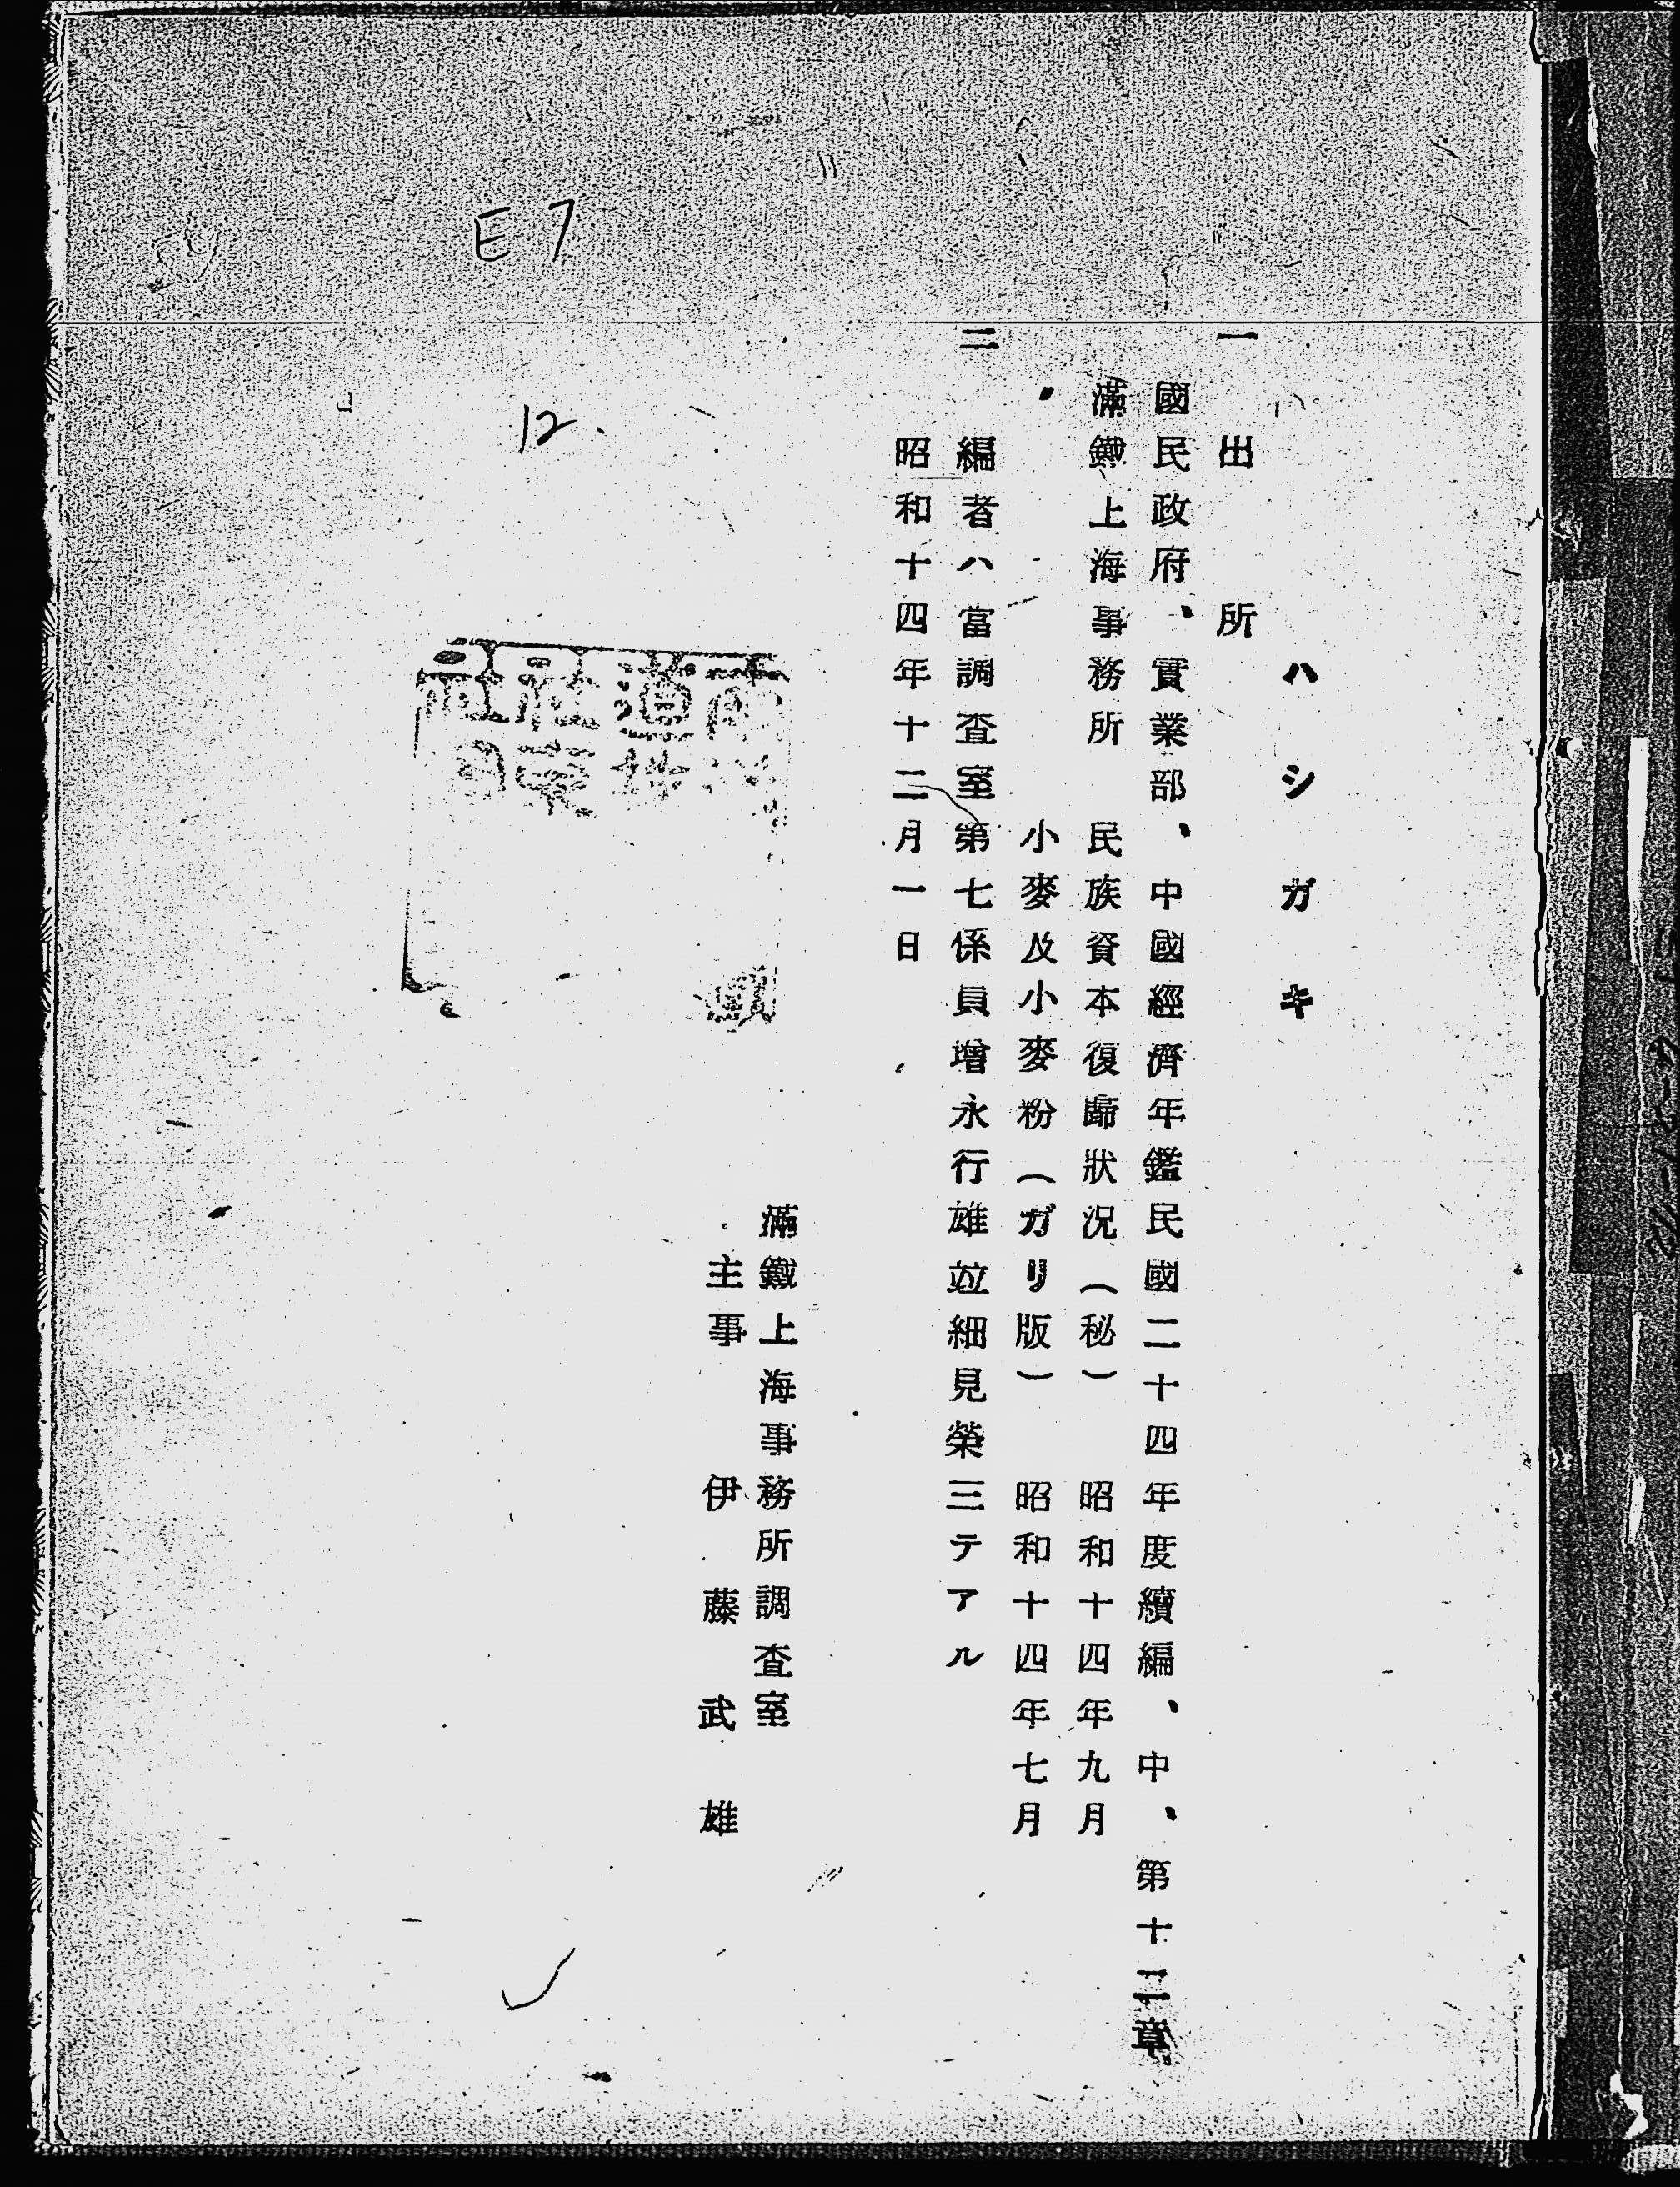 ハシガキ
一 出所
國民政府、實業部、中國經濟年鑑民國二十四年度續編、中、第十二章
滿鐵上海事務所 民族資本復歸狀況(秘) 昭和十四年九月
小麥及小麥粉(ガリ版) 昭和十四年七月
二 編者ハ當調査室第七係員增永行雄竝細見榮三テアル
昭和十四年十二月一日
滿鐵上海事務所調査室
主事 伊藤武雄
E7
12.